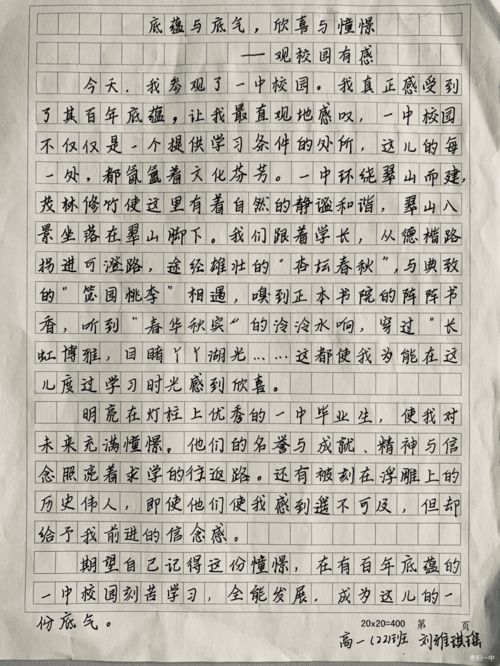 底蕴与底气，欣喜与憧憬
——观校园有感
今天，我参观了一中校园。我真正感受到
了其百年底蕴，让我最直观地感叹，一中校园
不仅仅是一个提供学习条件的处所，这儿的每
一处，都氤氲着文化芬芳。一中环绕翠山而建，
茂林修竹使这里有着自然的静谧和谐，翠山八
景坐落在翠山脚下。我们跟着学长，从德楷路
拐进可澄路，途经雄壮的“杏坛春秋”，与典致
的“笆园桃李”相遇，嗅到正本书院的阵阵书
香，听到“春华秋实”的泠泠水响，穿过“长
虹博雅，目睹丫丫湖光……这都使我为能在这
儿度过学习时光感到欣喜。
明亮在灯柱上优秀的一中毕业生，使我对
未来充满憧憬。他们的名誉与成就、精神与信
念照亮着求学的往返路。还有被刻在浮雕上的
历史伟人，即使他们使我感到遥不可及，但却
给予我前进的信念感。
期望自己记得这份憧憬，在有百年底蕴的
一中校园刻苦学习，全能发展，成为这儿的一
份底气。
20×20=400 第 页
高一(22)班 刘雅琪瑶
贵阳一中